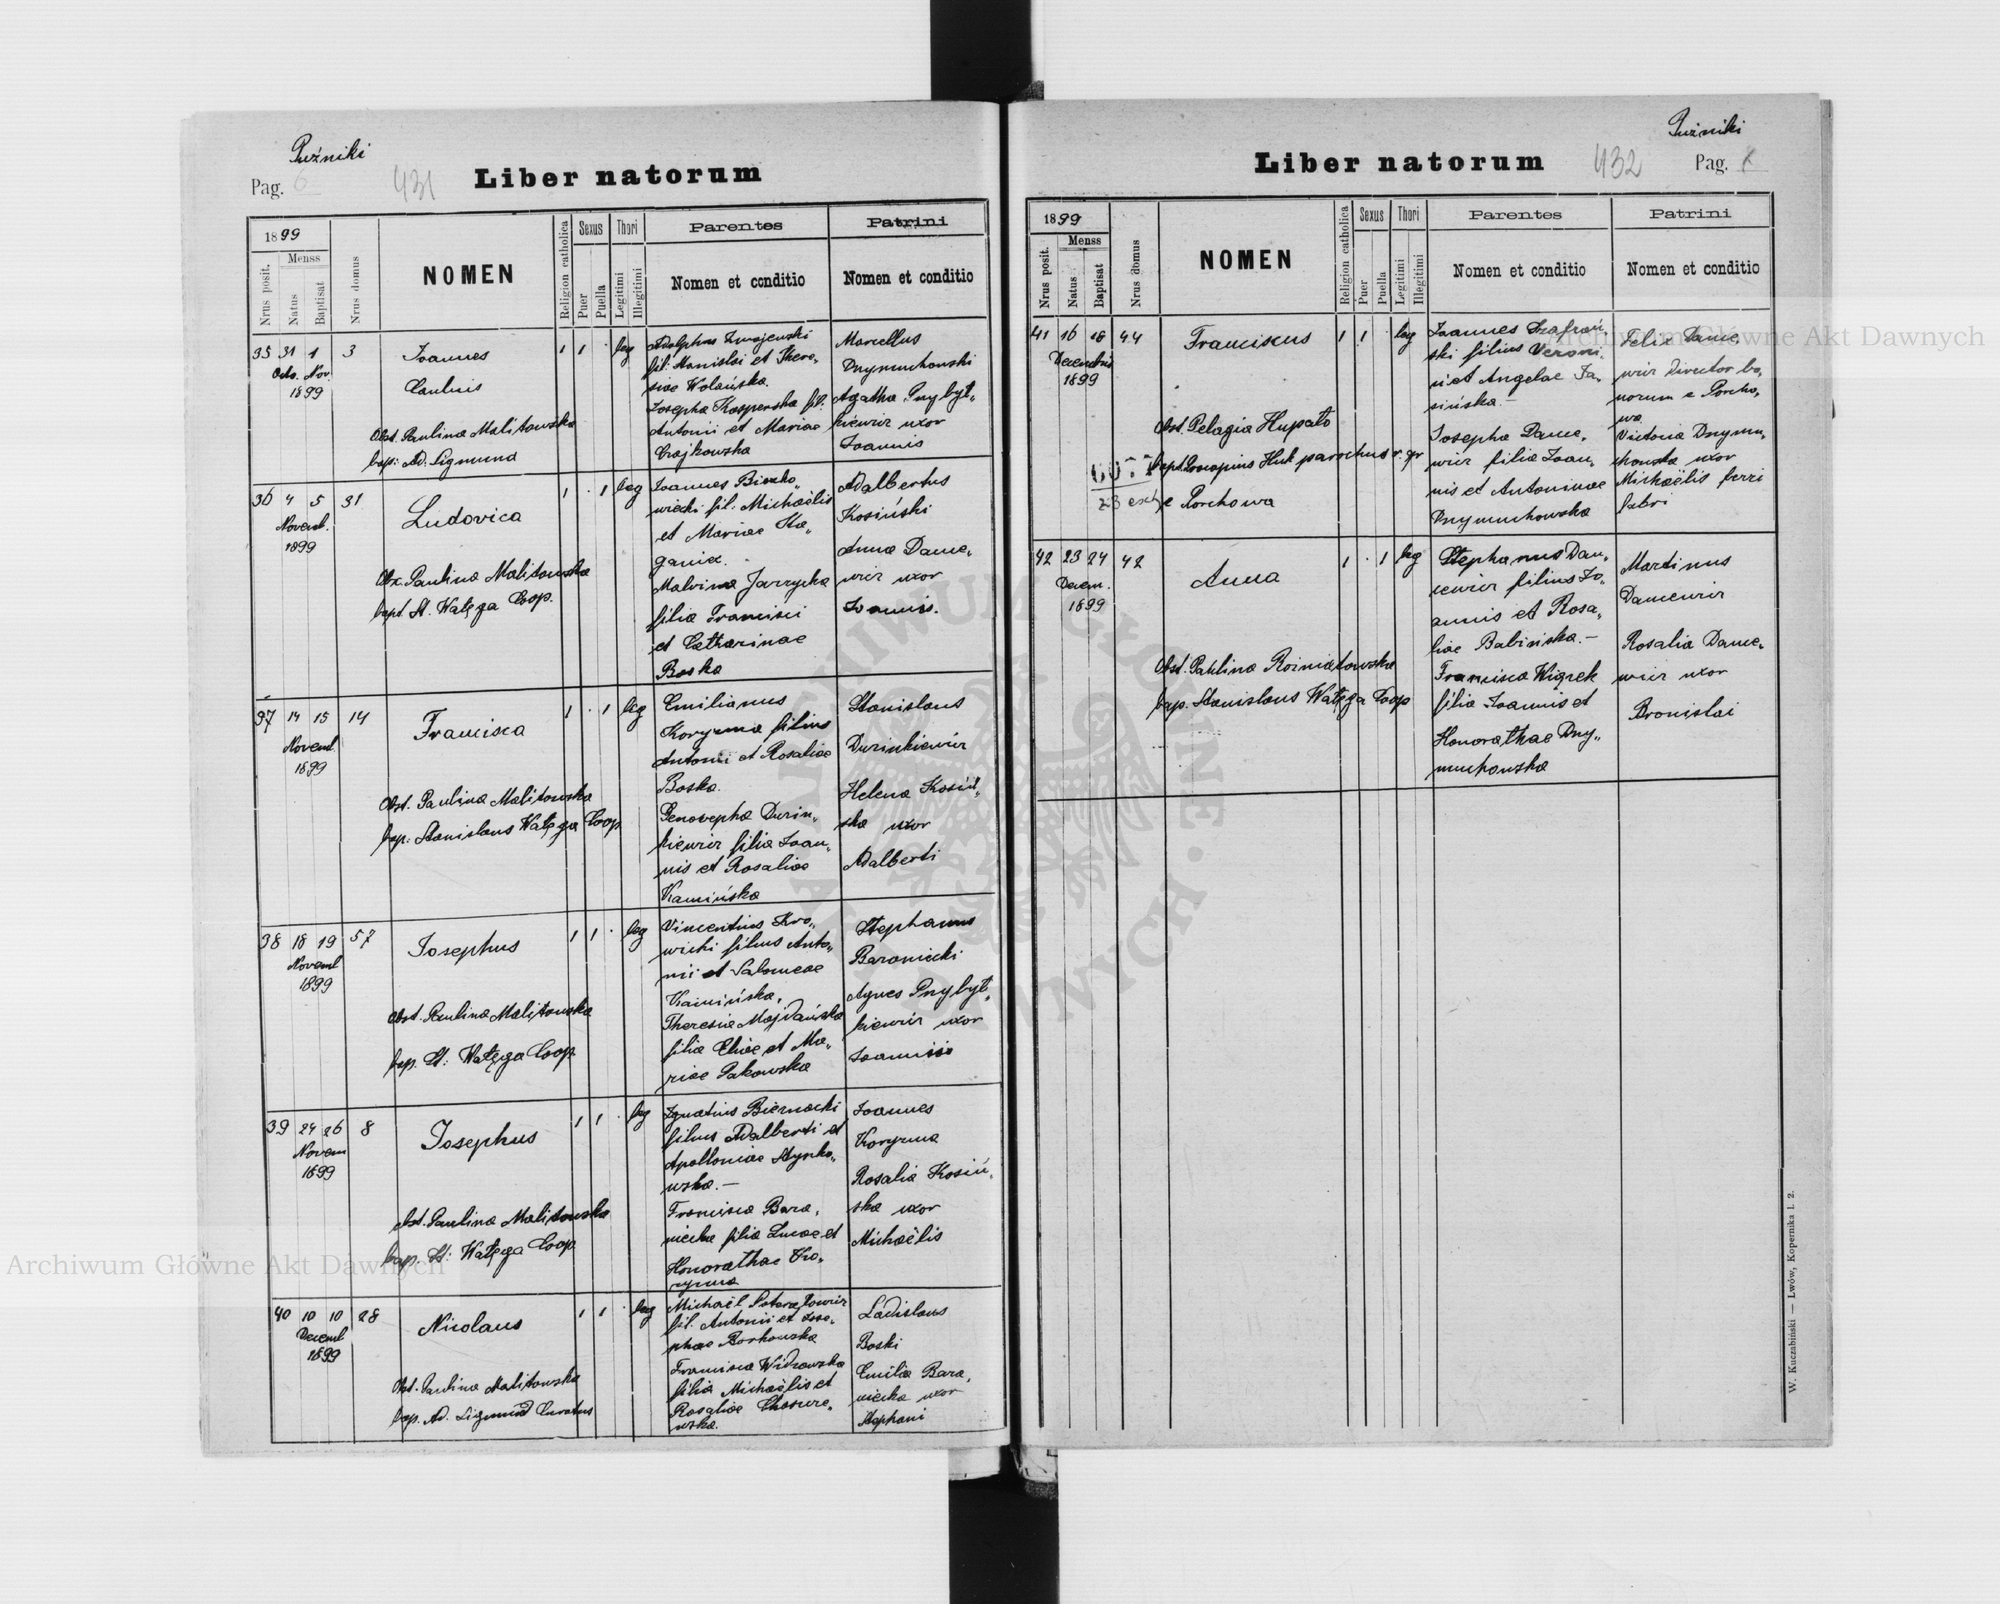 Puźniki
Pag. 6
431
Liber natorum
1899
Nrus posit.
Menss
Natus
Baptisat
Nrus domus
NOMEN
Religion catholica
Sexus
Puer
Puella
Thori
Legitimi
Illegitimi
Parentes
Nomen et conditio
Patrini
Nomen et conditio
35 31 1 3
Octo. Nov.
1899
Joannes
Obst. Paulina Malitowska
bap: Ad. Zigmund
1 1 leg
fil. Stanislai et There„
siae Wolańska.
Josepha Kasperska fil.
Antonii et Mariae
Czajkowska
Marcellus
Dnymuchowski
Agatha Przybyt„
kiewicz uxor
Joannis
36 4 5 31
Novemb.
1899
Ludovica
Obx. Paulina Malitowska
bapt. St. Watęga Coop.
1 . 1 leg
wiecki fil. Michaëlis
et Mariae Ka„
Malvina Jarzycka
filia Francisci
et Catharinae
Boska
Adalbertus
Kosiński
Anna Dance„
wicz uxor
Joannis.
37 14 15 14
Novemb
1899
Francisca
Obst. Paulina Malitowska
bap: Stanislaus Watęga Coop
1 . 1 leg
Emilianus
Koryzma filius
Antonii et Rosaliae
Boska.
Genovepha Durin„
kiewicz filia Joan„
nis et Rosaliae
Kamińska
Stanislaus
Durinkiewicz
Helena Kosiń„
ska uxor
Adalberti
38 18 19 57
Novemb
1899
Josephus
Obst. Paulina Malitowska
bap. St: Watęga Coop
1 1 . leg
Vincentius Kro„
wicki filius Anto„
nii et Salomeae
Kamińska,
Theresia Majdańska
filia Eliae et Ma„
riae Pakowska
Stephanus
Baraniecki
Agnes Przybyt„
kiewicz uxor
Joannis
39 24 26 8
Novem
1899
Josephus
Obst. Paulina Malitowska
bap. St: Watęga Coop
1 1 . leg
Ignatius Biernacki
filius Adalberti et
Apolloniae Szysko„
wska.—
Francisca Bara„
niecka filia Lucae et
Honorathae Ko„
ryzma
Joannes
Koryzma
Rosalia Kosiń„
ska uxor
Michaëlis
40 10 10 28
Decemb
1899
Nicolaus
Obst. Paulina Malitowska
bap. Ad. Zigmund Curatus
1 1 . leg
fil. Antonii et Jose„
phae Borkowska
Francisca Widzowska
filia Michaëlis et
Rosaliae
wska.
Ladislaus
Boski
Emilia Bara„
niecka uxor
Stephani
Puźniki
Liber natorum
432
Pag.
1899
Nrus posit.
Menss
Natus
Baptisat
Nrus domus
NOMEN
Religion catholica
Sexus
Puer
Puella
Thori
Legitimi
Illegitimi
Parentes
Nomen et conditio
Patrini
Nomen et conditio
41 16 18 44
Decembris
1899
Franciscus
Obst. Pelagia Hupało
bapt. Procopius Huk parochus r. gr
e Porchowa
1 1 . leg
Joannes Szafrań„
ski filius Veroni„
et Angelae Ja„
sińska.—
Josepha Dance„
wicz filia Joan„
nis et Antoninae
Dnymuchowska
Felix Dance„
wicz director bo„
norum e Porcho„
wa
Victoria Dnymu„
chowska uxor
Michaëlis ferri
fabri
42 23 24 42
Decem.
1899
Anna
Obst. Paulina Rozniatowska
bap. Stanislaus Watęga Coop
1 . 1 leg
Stephanus Dan„
cewicz filius Jo„
annis et Rosa„
liae Babińska.—
Francisca Wigrek
filia Joannis et
Honorathae Dny„
muchowska
Martinus
Dancewicz
Rosalia Dance„
wicz uxor
Bronislai
W. Kuczabiński — Lwów, Kopernika l. 2.
Archiwum Główne Akt Dawnych
Archiwum Główne Akt Dawnych